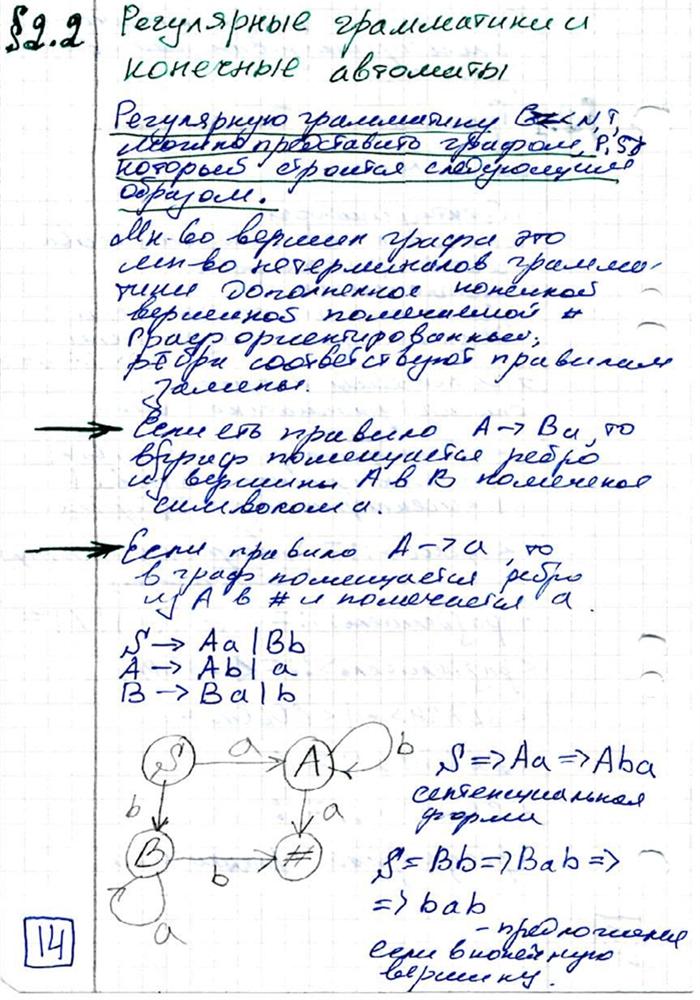 §2.2 Регулярные грамматики и
конечные автоматы
Регулярную грамматику G=<N,T,
можно представить графом, P,S>
который строится следующим
образом.
Мн-во вершин графа это
мн-во нетерминалов грамма-
тики дополненное конечной
вершиной помечаемой #
Граф ориентированный,
рёбра соответствуют правилам
замены.
Если еть правило A→Ba, то
в граф помещается ребро
из вершины A в B помеченое
символом a.
Если правило A→a, то
в граф помещается ребро
из A в # и помечается a.
S→ Aa | Bb
A→ Ab | a
B→ Ba | b
S a A b
S=>Aa=>Aba
сентенциальная
форма
b a
B b #
a
S=Bb=>Bab=>
=>bab
- предложение
если в конечную
вершину.
14